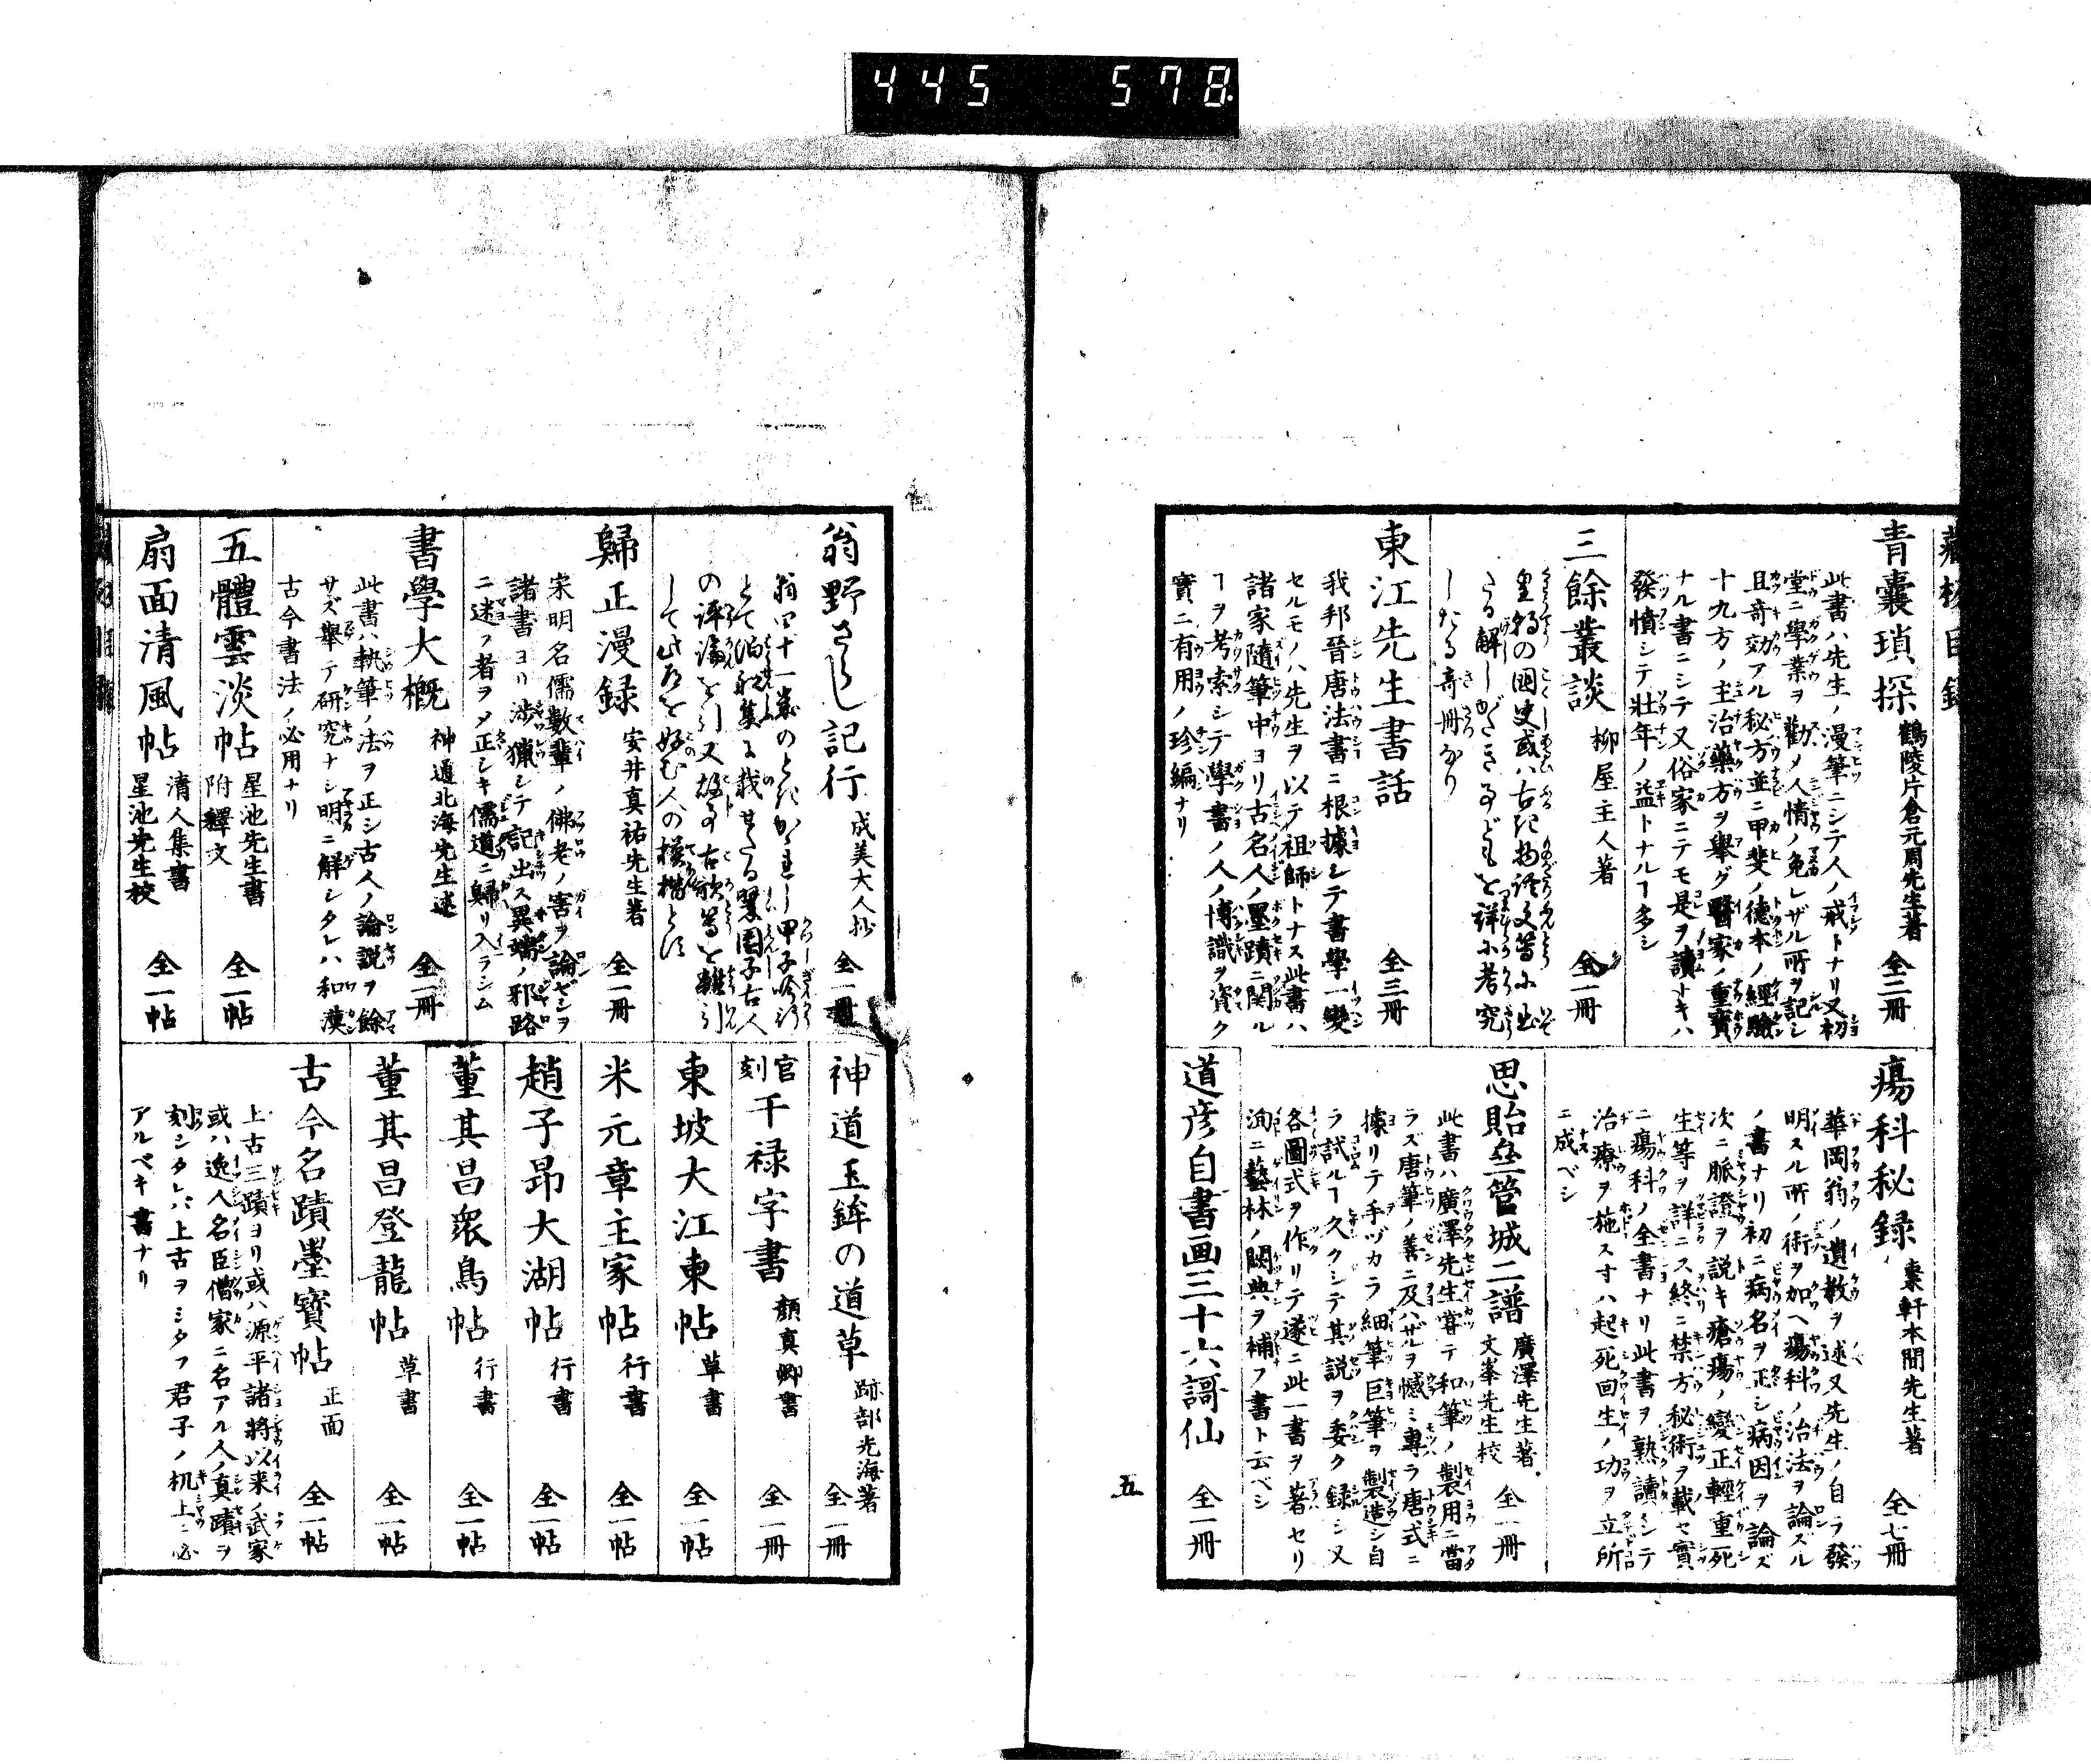 445 578
青囊瑣探 鶴陵片倉元周先生著 全二冊
此書ハ先生ノ漫筆ニシテ人ノ戒トナリ又初
堂ニ學業ヲ勸メ人情ノ免レザル所ヲ記シ
且奇効アル秘方並ニ甲斐ノ德本ノ經驗
十九方ノ主治藥方ヲ舉グ醫家ノ重寶
ナル書ニシテ又俗家ニテモ是ヲ讀トキハ
發憤シテ壯年ノ益トナルヿ多シ
三餘叢談 柳屋主人著 全一冊
の國史或ハ古
しがたき
したる
東江先生書話 全三冊
我邦晉唐法書ニ根據シテ書學一變
セルモノハ先生ヲ以テ祖師トナス此書ハ
諸家隨筆中ヨリ古名人ノ墨蹟ニ関ル
ヿヲ考索シテ學書ノ人ノ博識ヲ資ク
實ニ有用ノ珍編ナリ
瘍科秘録 棗軒本間先生著 全七冊
華岡翁ノ遺教ヲ述又先生ノ自ラ發
明スル所ノ術ヲ加ヘ瘍科ノ治法ヲ論スル
ノ書ナリ初ニ病名ヲ正シ病因ヲ論ズ
次ニ脈證ヲ説キ瘡瘍ノ變正輕重死
生等ヲ詳ニス終ニ禁方秘術ヲ載セ實
ニ瘍科ノ全書ナリ此書ヲ熟讀シテ
治療ヲ施ス寸ハ起死回生ノ功ヲ立所
ニ成ベシ
思貽壘管城二譜 廣澤先生著 文峯先生校 全一冊
此書ハ廣澤先生甞テ和筆ノ製用ニ當
ラズ唐筆ノ善ニ及バザルヲ憾ミ專ラ唐式ニ
據リテ手ヅカラ細筆巨筆ヲ製造シ自
ラ試ルヿ久クシテ其説ヲ委ク録シ又
各圖式ヲ作リテ遂ニ此一書ヲ著セリ
洵ニ藝林ノ闕典ヲ補フ書ト云ベシ
道彦自書画三十六謌仙 全一冊
五
翁野ざらし記行 成美大人抄 全一冊
翁四十一歳のとき
の評論を引又
して此道を好む人の模楷とす
歸正漫録 安井真祐先生著 全一冊
宋明名儒數輩ノ佛老ノ害ヲ論ゼシヲ
諸書ヨリ渉獵シテ記出ス異端ノ邪路
ニ迷フ者ヲメ正シキ儒道ニ歸リ入ラシム
書學大概 神通北海先生述 全一冊
此書ハ執筆ノ法ヲ正シ古人ノ論説ヲ餘
サズ舉テ研究ナシ明ニ解シタレハ和漢
古今書法ノ必用ナリ
五體雲淡帖 星池先生書 附釋文 全一帖
扇面清風帖 清人集書 星池先生校 全一帖
神道玉鉾の道草 跡部光海著 全一冊
官刻 干禄字書 顔真卿書 全一冊
東坡大江東帖 草書 全一帖
米元章主家帖 行書 全一帖
趙子昂大湖帖 行書 全一帖
董其昌衆鳥帖 行書 全一帖
董其昌登龍帖 草書 全一帖
古今名蹟墨寶帖 正面 全一帖
上古三蹟ヨリ或ハ源平諸將以来ノ武家
或ハ逸人名臣僧家ニ名アル人ノ真蹟ヲ
刻シタレバ上古ヲミタフ君子ノ机上ニ必
アルベキ書ナリ